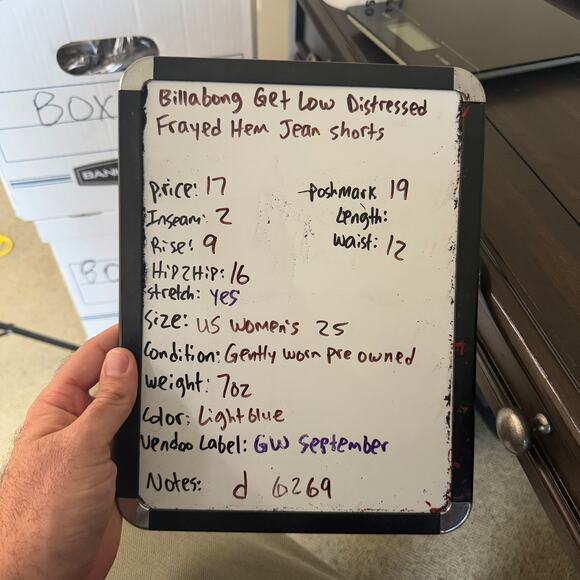 Billabong Get Low Distressed
Frayed Hem Jean Shorts
Price: 17
Poshmark 19
Inseam: 2
Length:
Rise: 9
Waist: 12
HIP2HIP: 16
Stretch: Yes
Size: US Women's 25
Condition: Gently worn pre owned
Weight: 7oz
Color: Light blue
Vendoo Label: GW September
Notes: d 6269
BOX
BANK